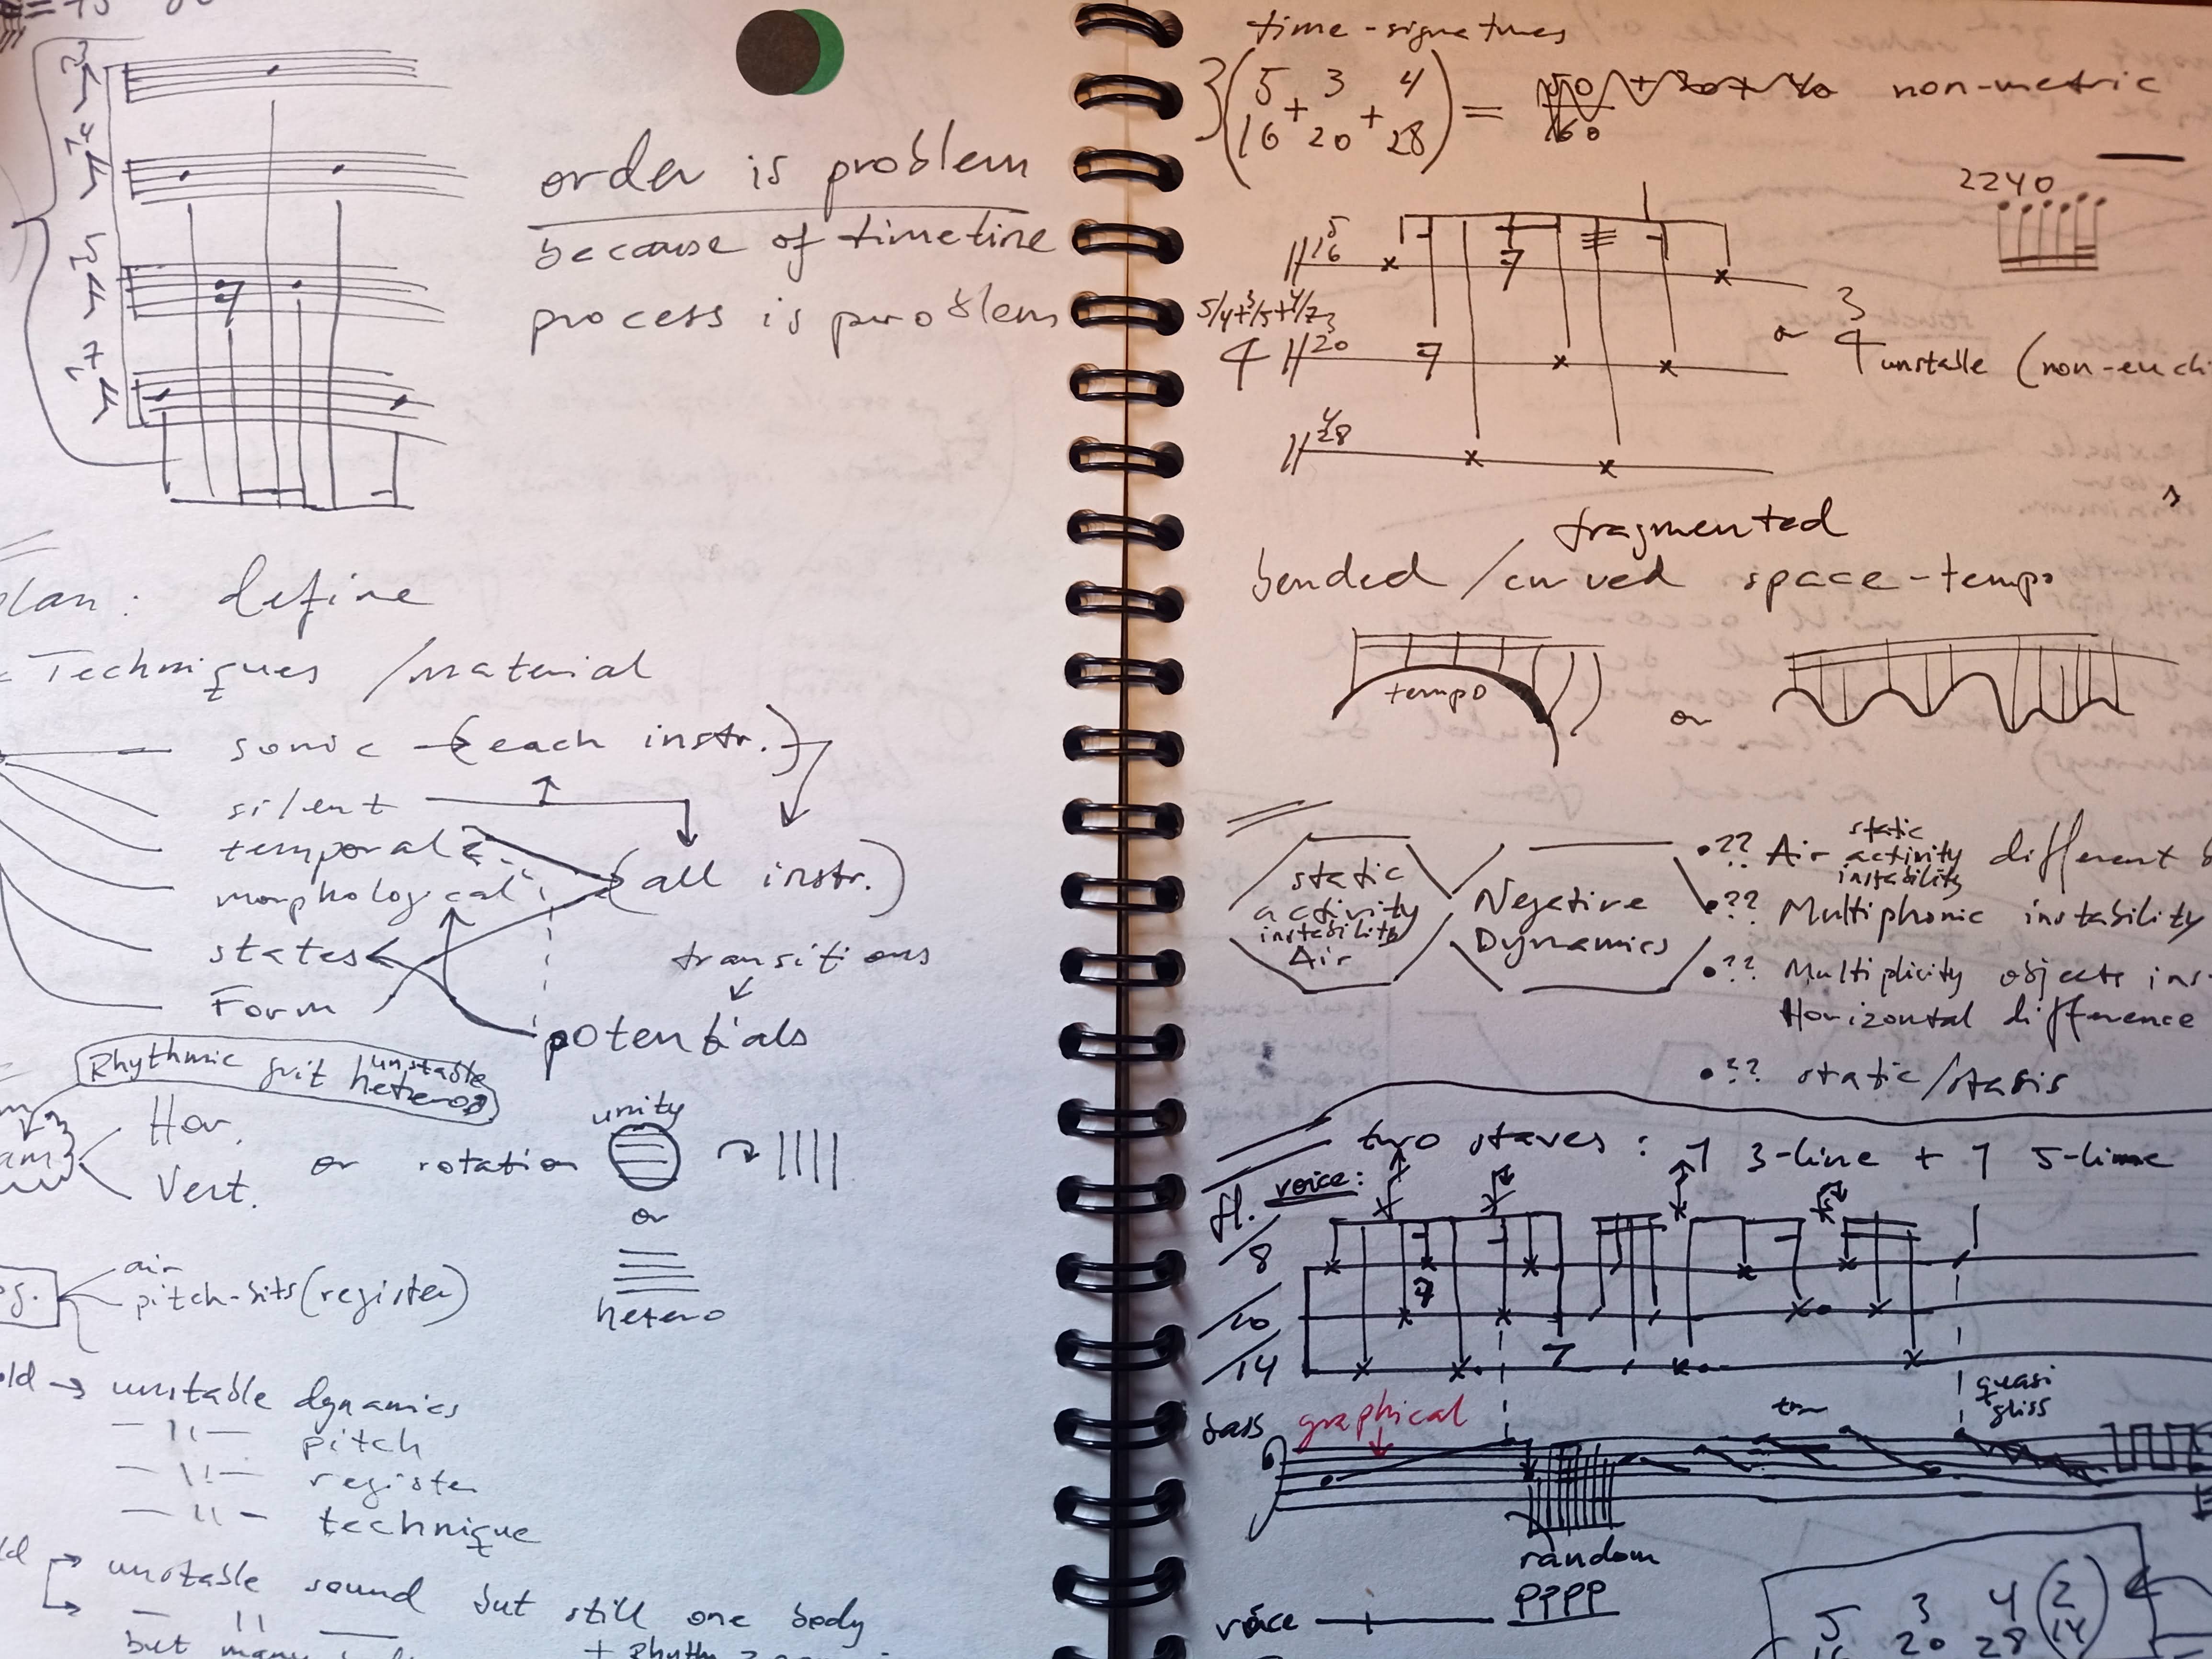 order is problem
because of timeline
process is problem
plan: define
Techniques /material
sonic → (each instr.)
silent
temporal
morphological
(all instr.)
states
transitions
Form
potentials
Rhythmic unit unstable
hetero
Hor.
Vert.
or rotation
unity
or
hetero
air
pitch-bits (register)
→ unstable dynamics
— 11 — pitch
— 11 — register
— 11 — technique
unstable sound but still one body
— 11 —
but many
time-signatures
3 ( 5 + 3 + 4 ) = non-metric
16 20 28
2240
5
16
5/4+3/5+4/7
3
20
or 3
4 unstable
4
28
fragmented
bended / curved space-tempo
tempo
or
static
activity
instability
Air
Negative
Dynamics
•?? Air static
activity
instability
different
•?? Multiphonic instability
•?? Multiplicity objects
Horizontal difference
•?? static/stasis
two staves: 1 3-line + 1 5-line
fl. voice:
/8
/10
/14
bass graphical
quasi
gliss
random
pppp
voice
5 3 4 2
16 20 28 14